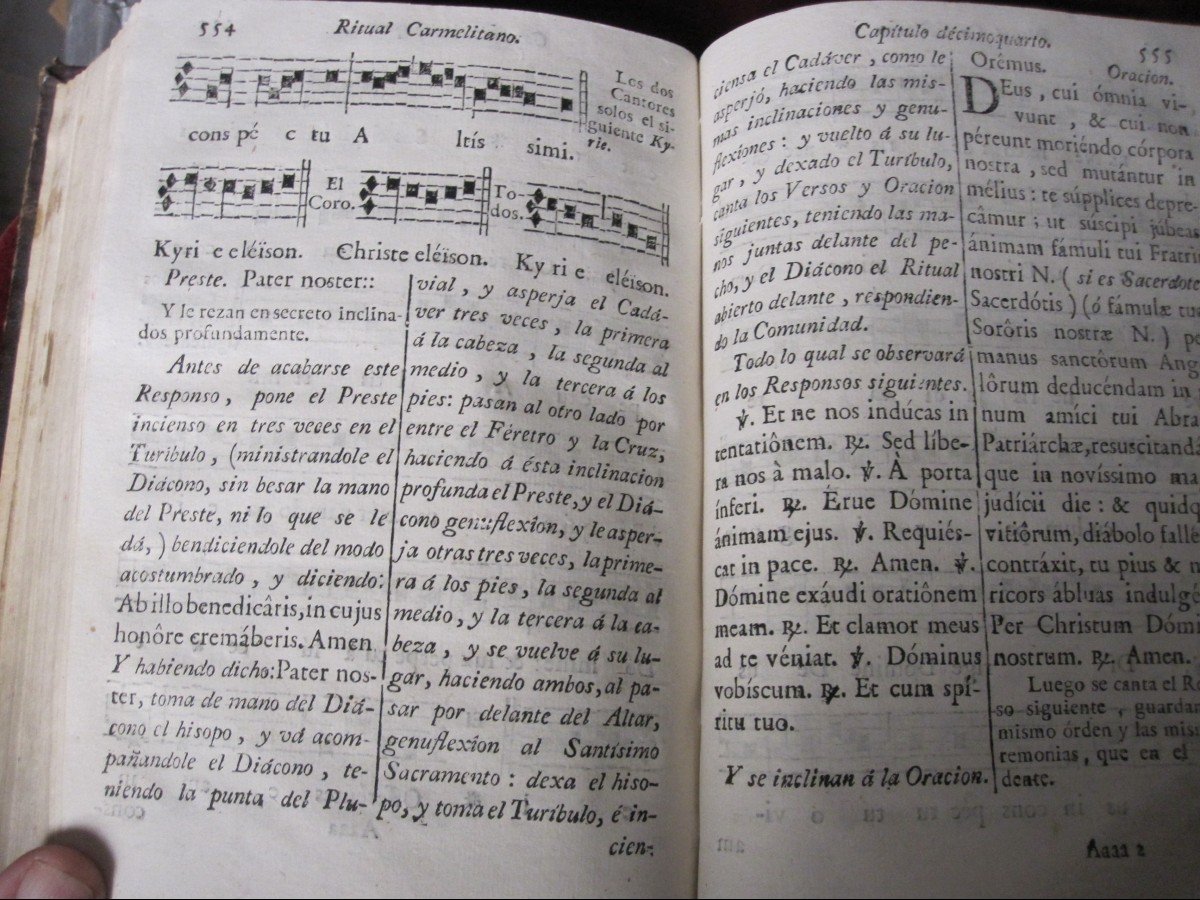 554
Ritual Carmelitano.
Los dos
Cantores
solos el si-
guiente Ky-
rie.
cons pé c tu A ltís simi.
El
Coro.
To
dos.
Kyri e eléïson. Christe eléïson. Ky ri e eléïson.
Preste. Pater noster::
Y le rezan en secreto inclina-
dos profundamente.
Antes de acabarse este
Responso, pone el Preste
incienso en tres veces en el
Turíbulo, (ministrandole el
Diácono, sin besar la mano
del Preste, ni lo que se le
dá,) bendiciendole del modo
acostumbrado, y diciendo:
Ab illo benedicâris, in cujus
honôre cremáberis. Amen
Y habiendo dicho: Pater nos-
ter, toma de mano del Diá-
cono el hisopo, y vá acom-
pañandole el Diácono, te-
niendo la punta del Plu-
vial, y asperja el Cadá-
ver tres veces, la primera
á la cabeza, la segunda al
medio, y la tercera á los
pies: pasan al otro lado por
entre el Féretro y la Cruz,
haciendo á ésta inclinacion
profunda el Preste, y el Diá-
cono genuflexîon, y le asper-
ja otras tres veces, la prime-
ra á los pies, la segunda al
medio, y la tercera á la ca-
beza, y se vuelve á su lu-
gar, haciendo ambos, al pa-
sar por delante del Altar,
genuflexîon al Santísimo
Sacramento: dexa el hiso-
po, y toma el Turíbulo, é in-
cien-
Capítulo décimoquarto.
555
ciensa el Cadáver, como le
asperjó, haciendo las mis-
mas inclinaciones y genu-
flexîones: y vuelto á su lu-
gar, y dexado el Turíbulo,
canta los Versos y Oracion
siguientes, teniendo las ma-
nos juntas delante del pe-
cho, y el Diácono el Ritual
abierto delante, respondien-
do la Comunidad.
Todo lo qual se observará
en los Responsos siguientes.
℣. Et ne nos indúcas in
tentatiônem. ℟. Sed líbe-
ra nos à malo. ℣. À porta
ínferi. ℟. Erue Dómine
ánimam ejus. ℣. Requiés-
cat in pace. ℟. Amen. ℣.
Dómine exáudi oratiônem
meam. ℟. Et clamor meus
ad te véniat. ℣. Dóminus
vobíscum. ℟. Et cum spí-
ritu tuo.
Y se inclinan á la Oracion.
Orémus. Oracion.
DEus, cui ómnia vi-
vunt, & cui non
péreunt moriéndo córpora
nostra, sed mutántur in
mélius: te súpplices depre-
câmur; ut súscipi júbeas
ánimam fámuli tui Fratri
nostri N. (si es Sacerdote
Sacerdótis) (ó fámulæ tuæ
Sorôris nostræ N.) pe
manus sanctôrum Ang
lôrum deducéndam in
num amíci tui Abra
Patriárchæ, resuscitánda
que in novíssimo ma
judícii die: & quidq
vitiôrum, diábolo fallé
contráxit, tu pius & m
ricors ábluas indulgé
Per Christum Dómi
nostrum. ℟. Amen.
Luego se canta el Re
so siguiente, guardan
mismo órden y las mis
remonias, que en el
dente.
Aaaa 2